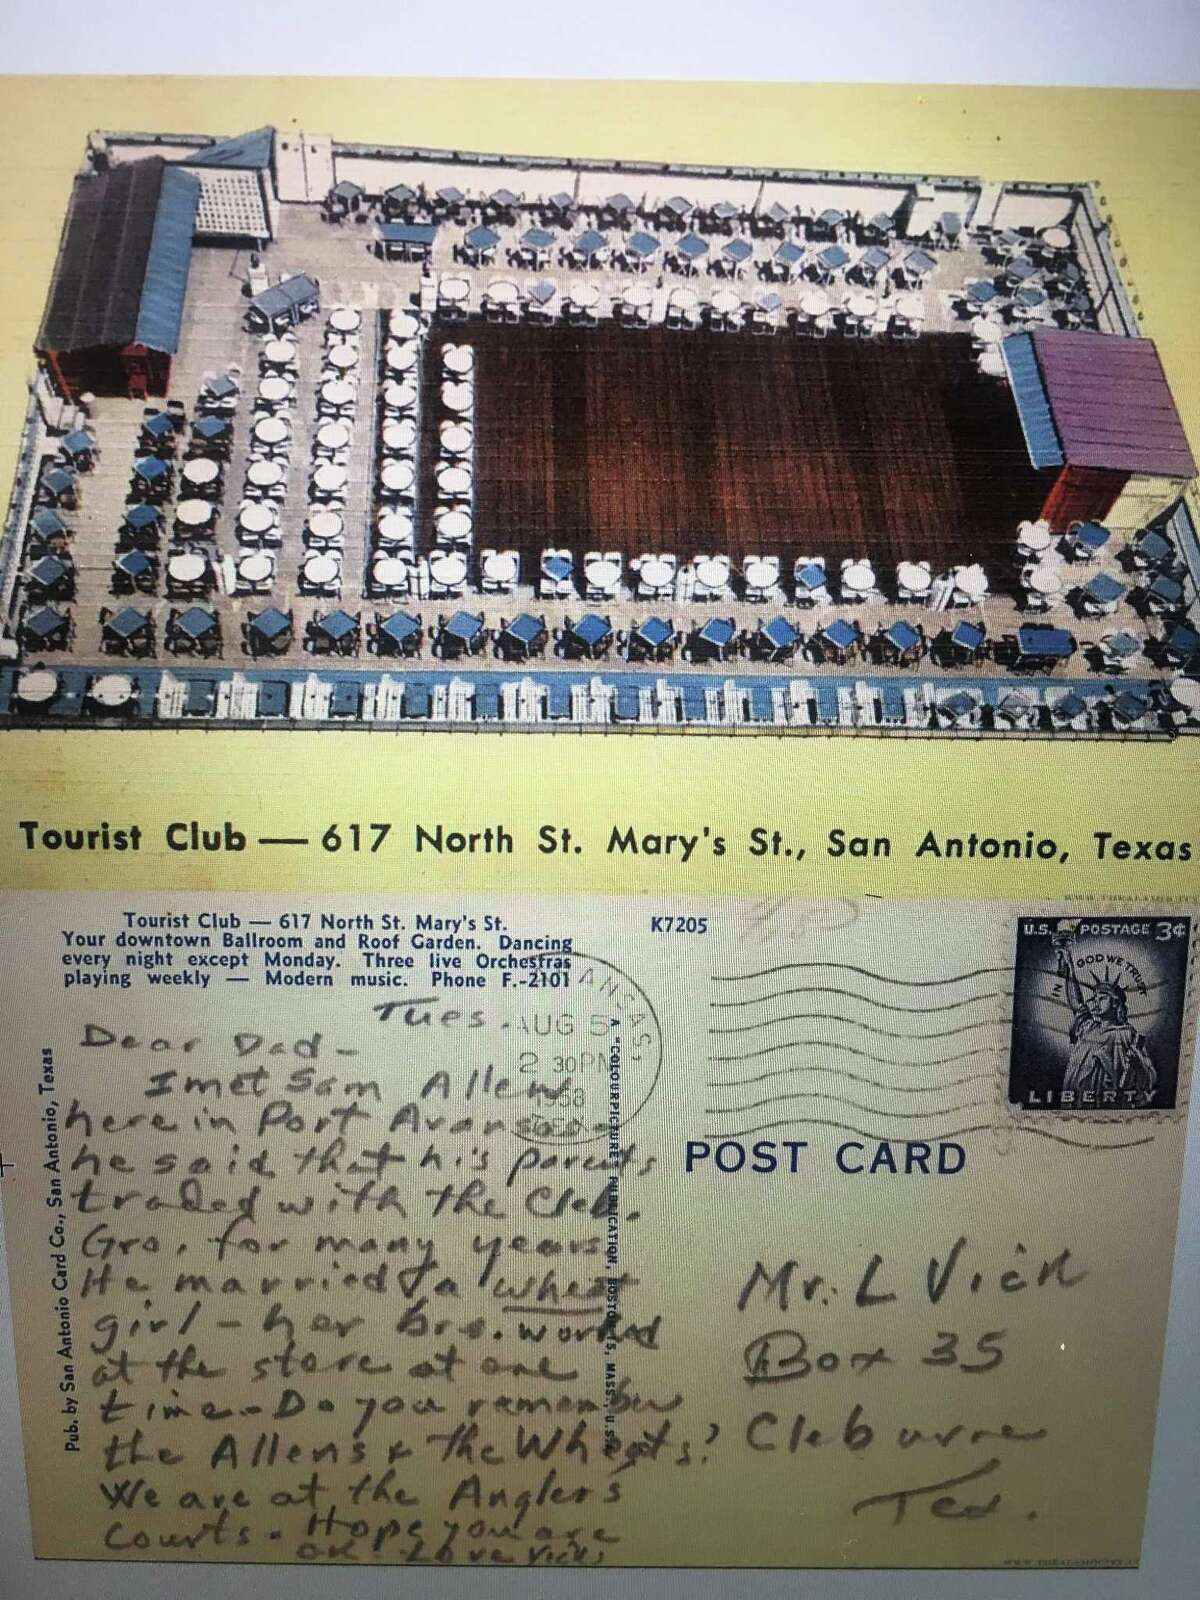 Tourist Club — 617 North St. Mary's St., San Antonio, Texas
Tourist Club — 617 North St. Mary's St.
Your downtown Ballroom and Roof Garden. Dancing
every night except Monday. Three live Orchestras
playing weekly — Modern music. Phone F.-2101
K7205
U.S. POSTAGE 3¢
IN GOD WE TRUST
LIBERTY
ANSAS,
AUG 5
2 30PM
1958
TEX
Pub. by San Antonio Card Co., San Antonio, Texas
A "COLOURPICTURE" PUBLICATION, BOSTON 15, MASS., U.S.A.
Tues.
Dear Dad-
I met Sam Allen
here in Port Aransas-
he said that his parents
traded with the Cleb.
Gro. for many years.
He married a Wheat
girl - her bro. worked
at the store at one
time - Do you remember
the Allens & the Wheats?
We are at the Anglers
Courts. Hope you are
OK Love Vicks
POST CARD
Mr. L Vick
Box 35
Cleburne
Tex.